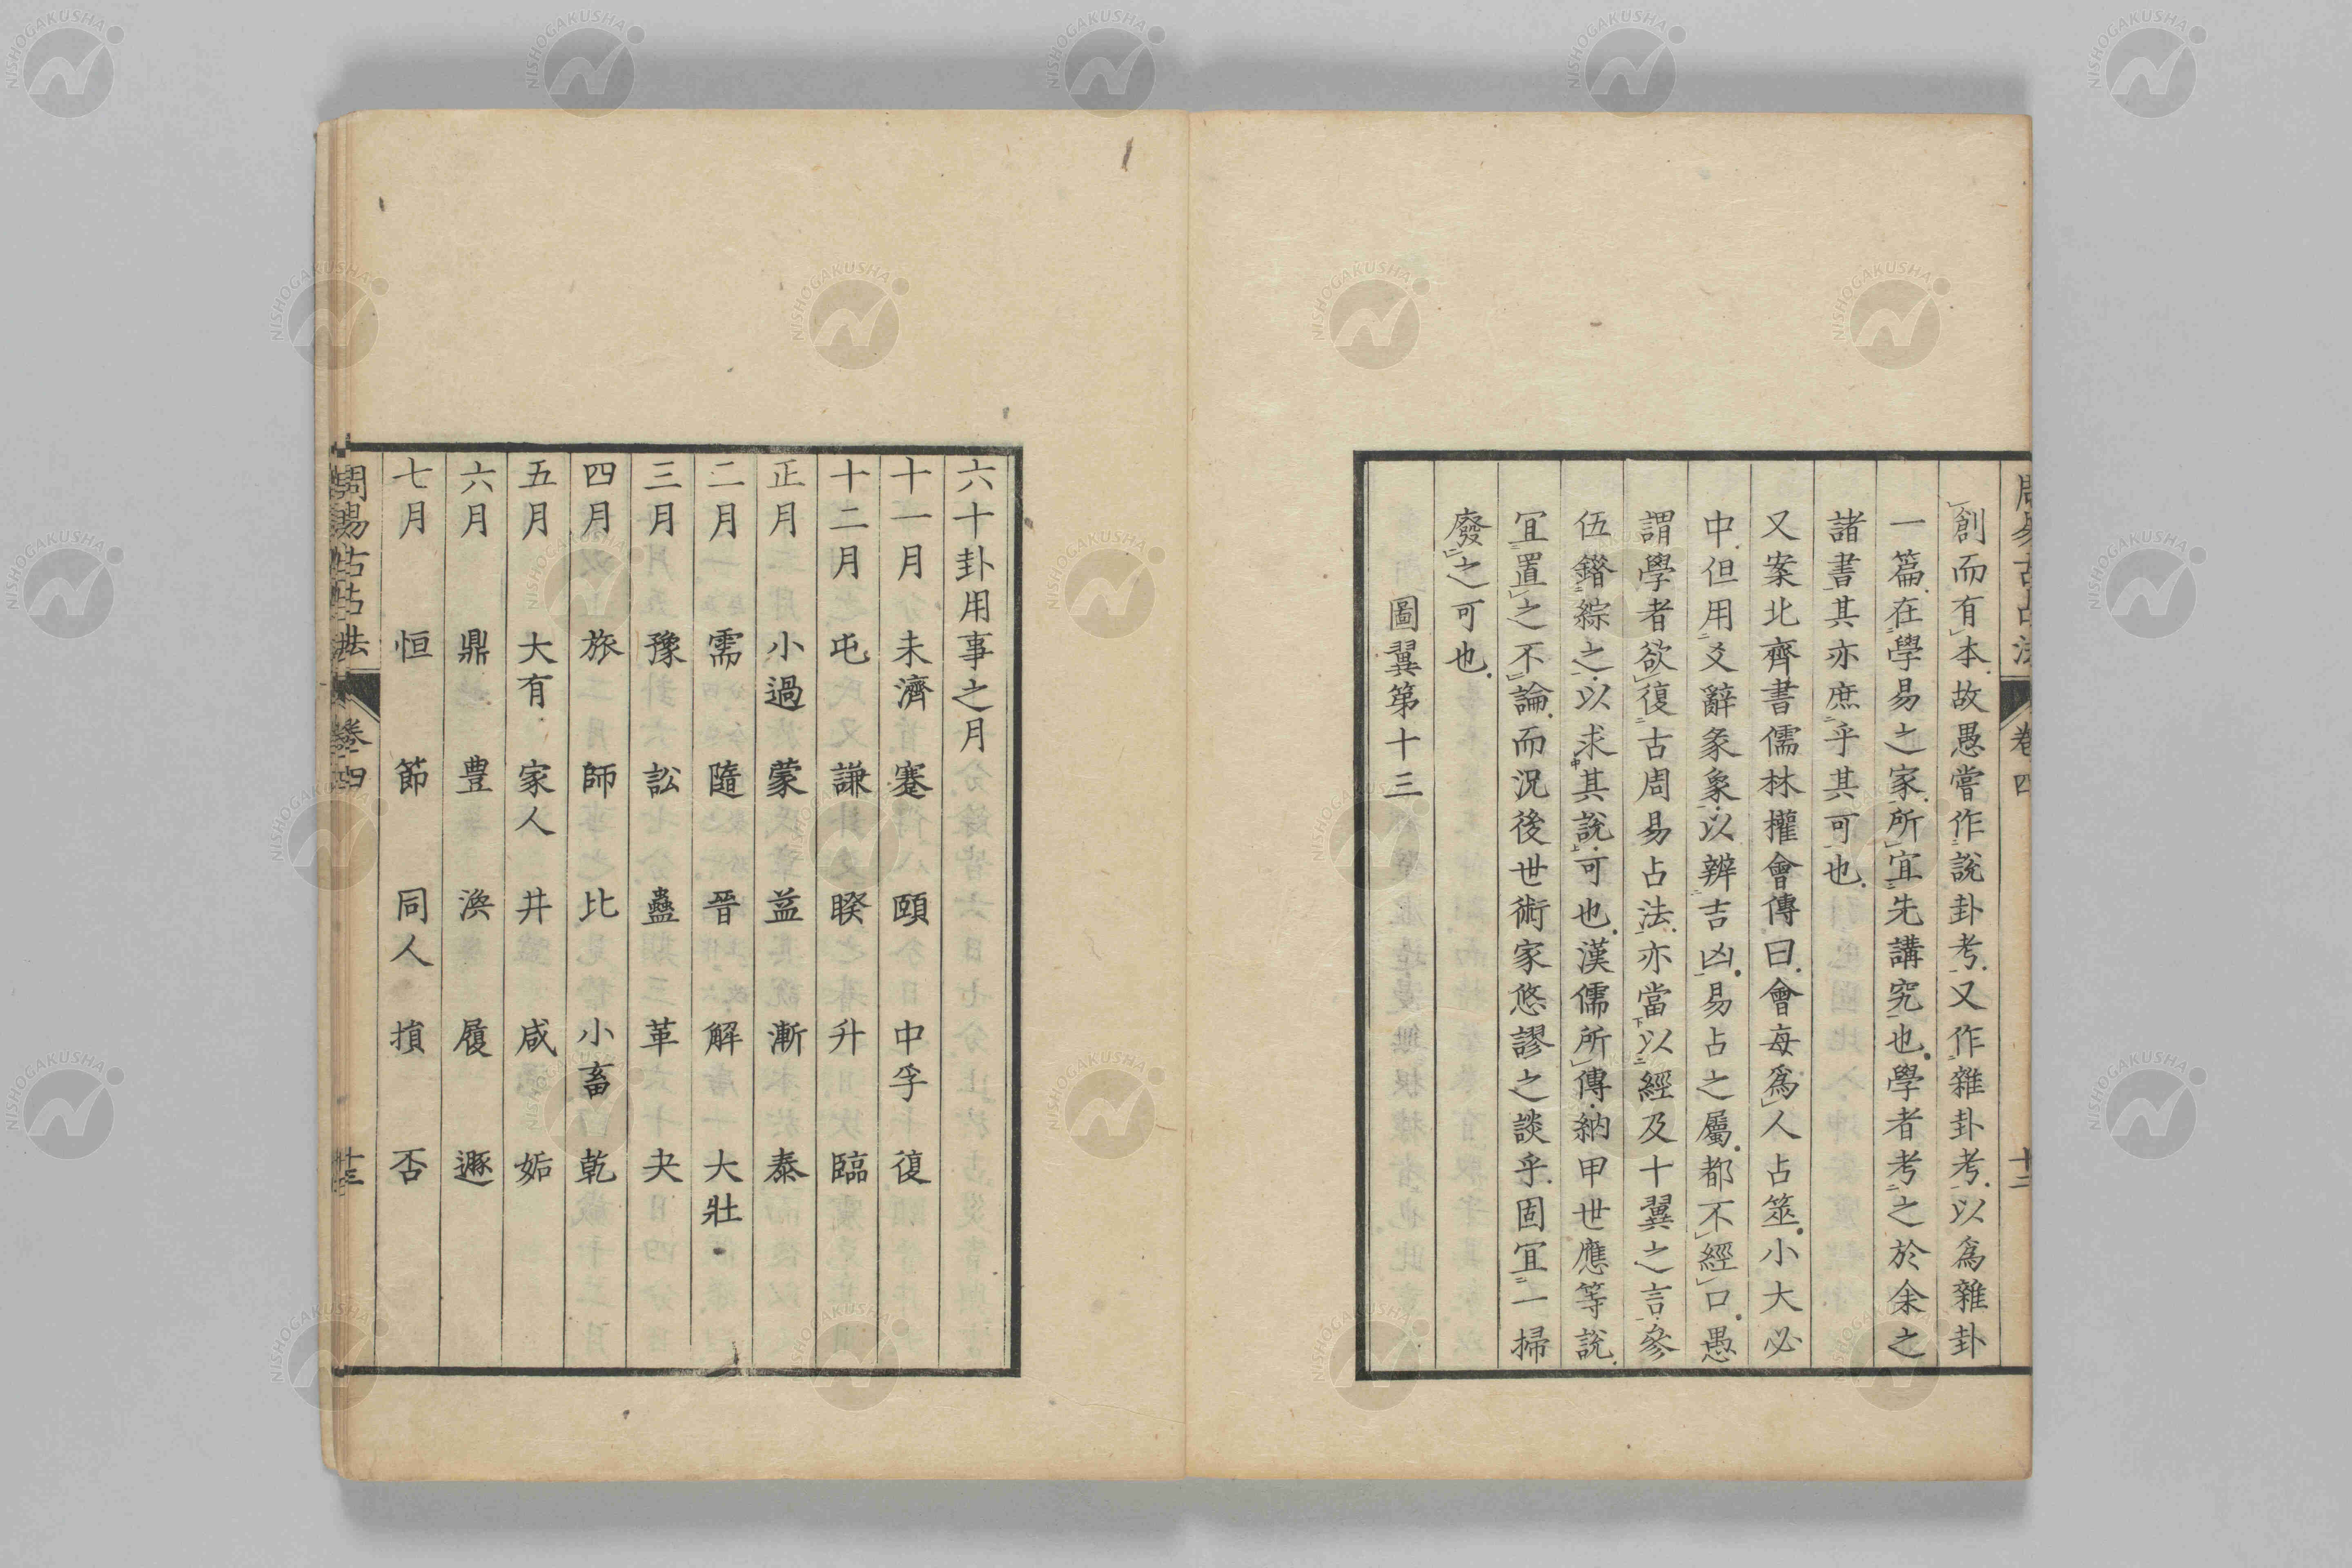 周易古占法 卷四 十二
創而有本故愚嘗作說卦考又作雜卦考以爲雜卦
一篇在學易之家所宜先講究也學者考之於余之
諸書其亦庶乎其可也
又案北齊書儒林權會傳曰會每爲人占筮小大必
中但用爻辭彖象以辨吉凶易占之屬都不經口愚
謂學者欲復古周易占法亦當以經及十翼之言參
伍鐕綜之以求其說可也漢儒所傳納甲世應等說
宜置之不論而況後世術家悠謬之談乎固宜一掃
廢之可也
圖翼第十三
六十卦用事之月
十一月 未濟 蹇 頤 中孚 復
十二月 屯 謙 睽 升 臨
正月 小過 蒙 益 漸 泰
二月 需 隨 晉 解 大壯
三月 豫 訟 蠱 革 夬
四月 旅 師 比 小畜 乾
五月 大有 家人 井 咸 姤
六月 鼎 豊 渙 履 遯
七月 恒 節 同人 損 否
周易古占法 卷四 十三
NISHOGAKUSHA